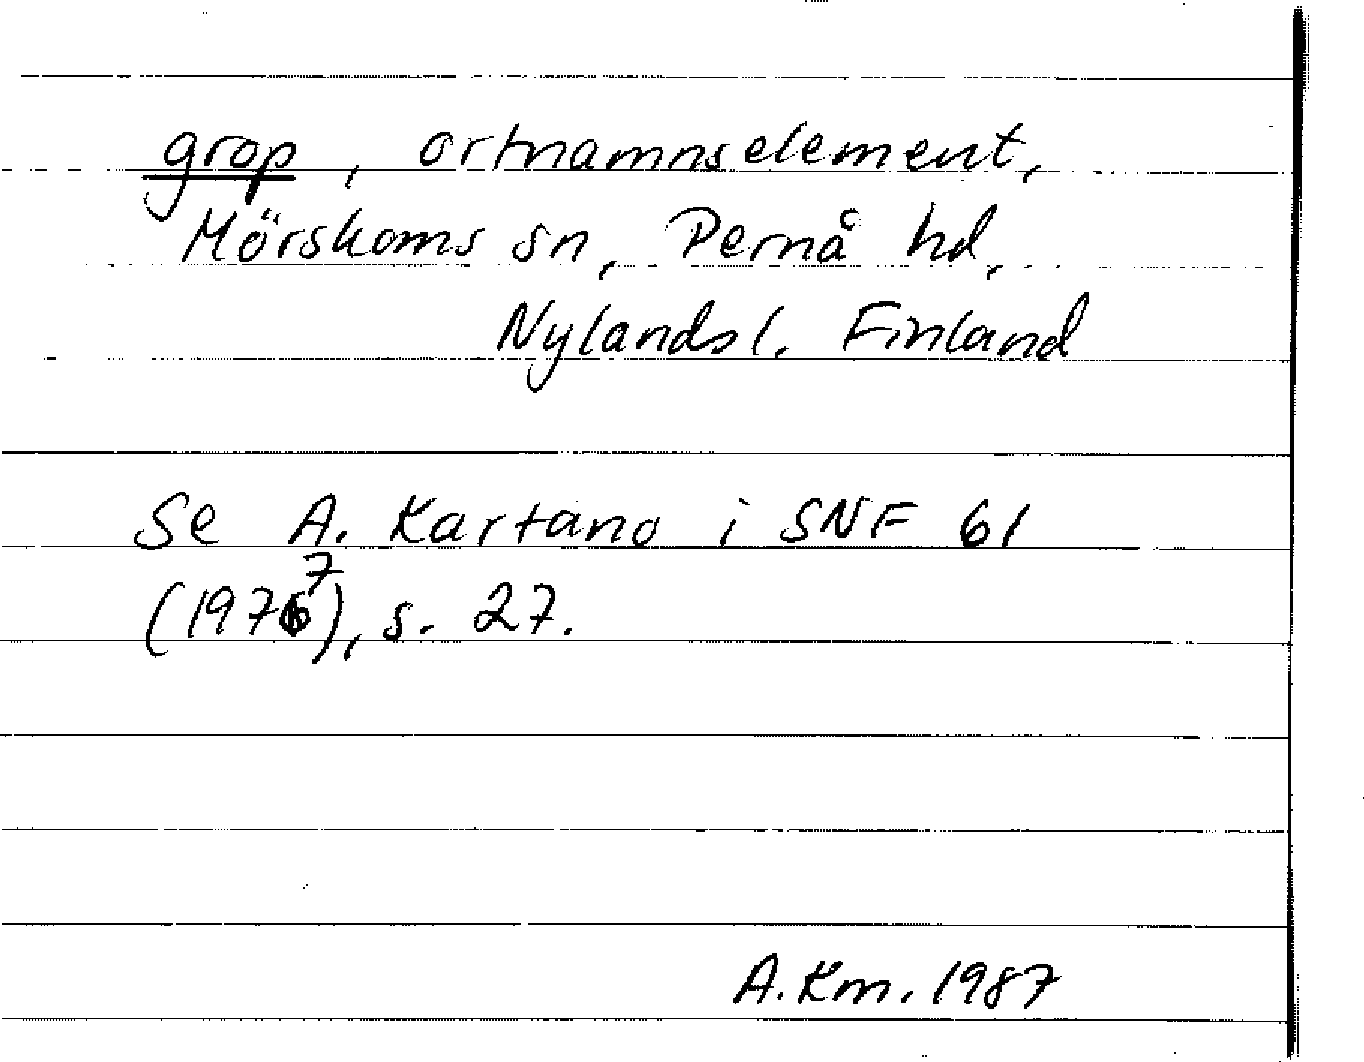 grop, ortnamnselement,
Mörskoms sn, Pernå hd,
Nylandsl. Finland
Se A. Kartano i SNF 61
(1977), s. 27.
A.Km. 1987